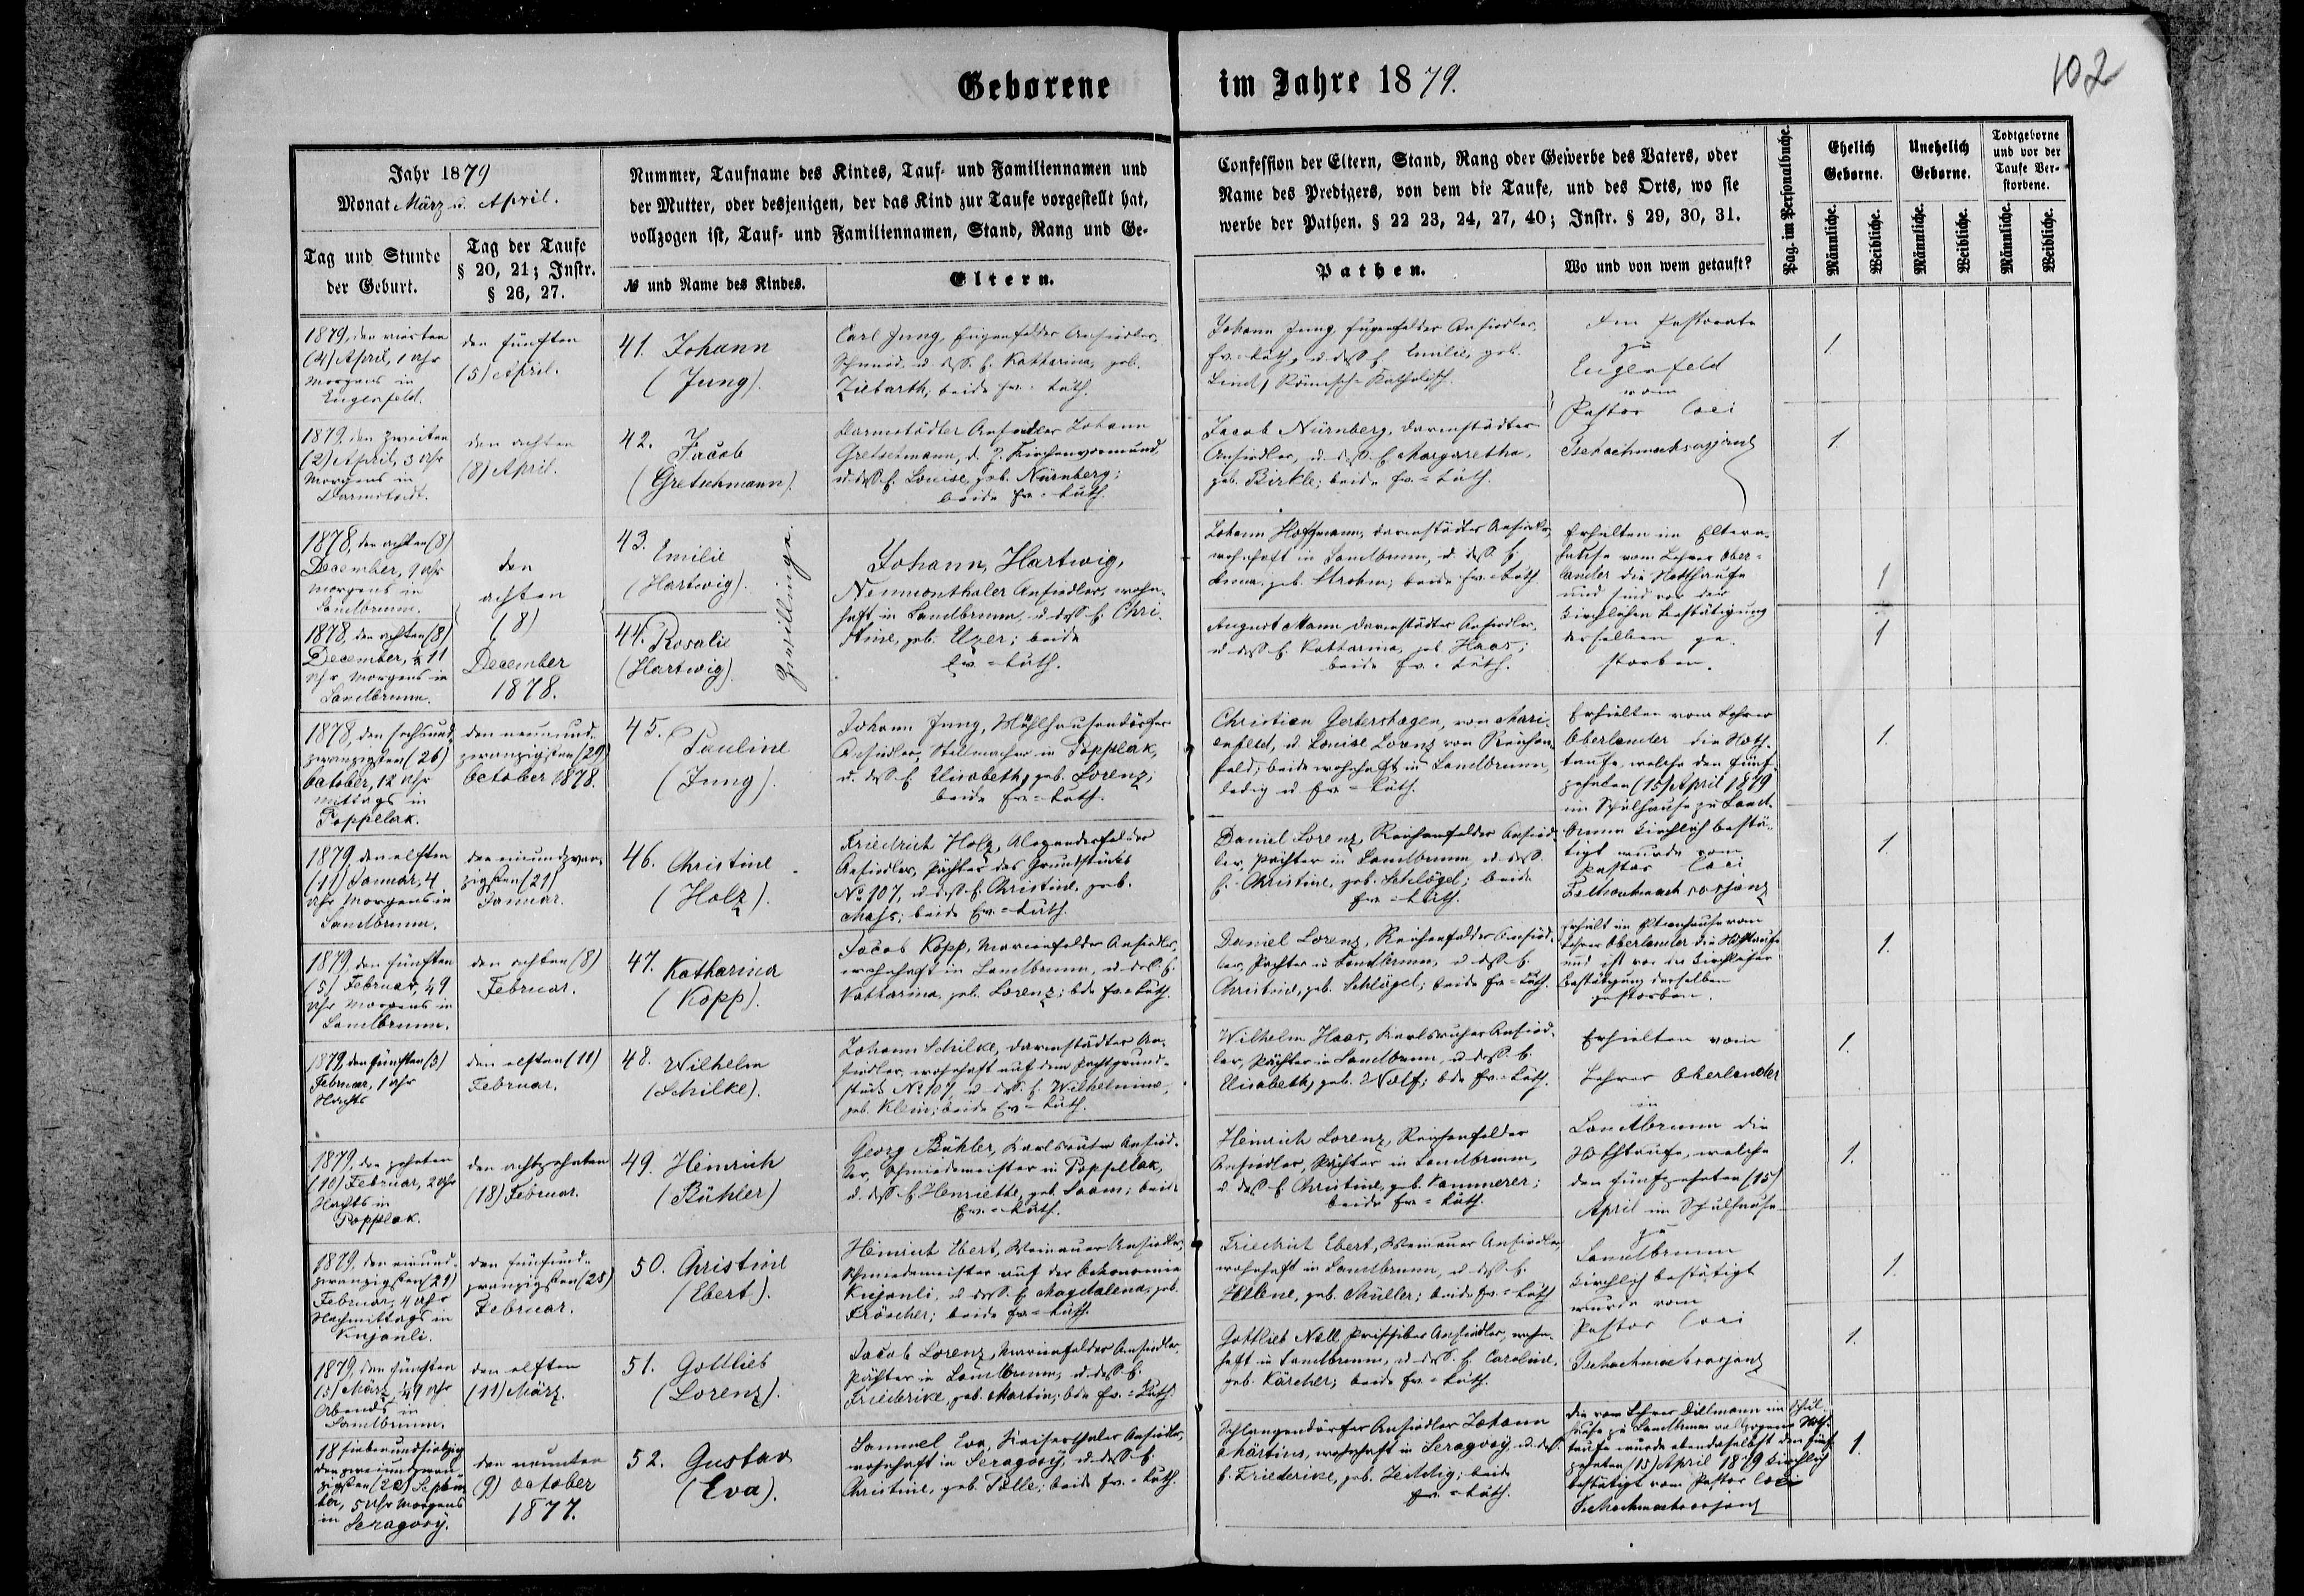 102
Geborene im Jahre 1879.
Jahr 1879
Monat März u. April.
Tag und Stunde
der Geburt.
Tag der Taufe
§ 20, 21; Instr.
§ 26, 27.
Nummer, Taufname des Kindes, Tauf- und Familiennamen und
der Mutter, oder desjenigen, der das Kind zur Taufe vorgestellt hat,
vollzogen ist, Tauf- und Familiennamen, Stand, Rang und Ge-
№ und Name des Kindes.
Eltern.
Confession der Eltern, Stand, Rang oder Gewerbe des Vaters, oder
Name des Predigers, von dem die Taufe, und des Orts, wo sie
werbe der Pathen. § 22 23, 24, 27, 40; Instr. § 29, 30, 31.
Pathen.
Wo und von wem getauft?
Pag. im Personalbuche.
Ehelich
Geborne.
Unehelich
Geborne.
Todtgeborne
und vor der
Taufe Ver-
storbene.
Männliche.
Weibliche.
Männliche.
Weibliche.
Männliche.
Weibliche.
1879, den vierten
(4) April, 1 Uhr
Morgens in
Eugenfeld.
den fünften
(5) April.
41. Johann
(Jung).
Carl Jung, Eugenfelder Ansiedler,
Schmied, u. deß. E. Katharina, geb.
Ziebarth, beide Ev.=Luth.
Johann Jung, Eugenfelder Ansiedler,
Ev.=Luth., u. deß E. Emilie, geb.
Lind, Römisch=Katholisch.
Im Pastorate
zu
Eugenfeld
vom
Pastor loci
1.
1879, den zweiten
(2) April, 3 Uhr
Morgens in
Darmstadt.
den achten
(8) April.
42. Jacob
(Gretschmann).
Darmstädter Ansiedler Johann
Gretschmann, d. Z. Kirchenvormund,
u. deß. E. Louise, geb. Nürnberg;
beide Ev.=Luth.
Jacob Nürnberg, Darmstädter
Ansiedler, u. deß. E. Margaretha,
geb. Birkle; beide Ev.=Luth.
1.
1878, den achten (8)
December, 9 Uhr
Morgens in
Landbrunn.
den
achten
(8)
December
1878.
43. Emilie
(Hartwig).
Zwillinge.
Johann Hartwig,
Neumonthaler Ansiedler, wohn-
haft in Landbrunn, u. deß. E. Chri-
stine, geb. Uzer; beide
Ev.=Luth.
Johann Hoffmann, Darmstädter Ansiedler,
wohnhaft in Landbrunn, u. deß. E.
Anna, geb. Strohm; beide Ev.=Luth.
Erhielten im Eltern-
hause vom Lehrer Ober-
lander die Nothtaufe
und sind vor der
kirchlichen Bestätigung
derselben ge-
storben.
1
1878, den achten (8)
December, ½ 11
Uhr Morgens in
Landbrunn.
44. Rosalie
(Hartwig).
August Mann, Darmstädter Ansiedler,
u. deß E. Katharina, geb. Haas;
beide Ev.=Luth.
1
1878, den sechsund-
zwanzigsten (26)
October, 12 Uhr
Mittags in
Popplak.
den neunund-
zwanzigsten (29)
October 1878.
45. Pauline
(Jung).
Johann Jung, Mühlhausendörfer
Ansiedler, Stellmacher in Popplak,
u. deß E. Elisabeth, geb. Lorenz;
beide Ev.=Luth.
Christian Gerterhagen, von Mari-
enfeld, u. Louise Lorenz von Reichen-
feld; beide wohnhaft in Landbrunn,
ledig u. Ev.=Luth.
Erhielten vom Lehrer
Oberlander die Noth-
taufe, welche den fünf-
zehnten (15) April 1879
im Schulhause zu Land-
brunn kirchlich bestä-
tigt wurde vom
Pastor loci
1.
1879, den elften
(11) Januar, 4
Uhr Morgens in
Landbrunn.
den einundzwan-
zigsten (21)
Januar.
46. Christine
(Holz).
Friedrich Holz, Alexanderfelder
Ansiedler, Pächter des Grundstückes
№ 107, u. deß. E. Christine, geb.
beide Ev.=Luth.
Daniel Lorenz, Reichenfelder Ansied-
ler, Pächter in Landbrunn, u. deß.
E. Christine, geb. Schlögel; beide
Ev.=Luth.
1.
1879, den fünften
(5) Februar, 49
Uhr Morgens in
Landbrunn.
den achten (8)
Februar.
47. Katharina
(Kopp).
Jacob Kopp, Marienfelder Ansiedler,
wohnhaft in Landbrunn, u. deß. E.
Katharina, geb. Lorenz; bde Ev.=Luth.
Daniel Lorenz, Reichenfelder Ansied-
ler, Pächter in Landbrunn, u. deß E.
Christine, geb. Schlögel; beide Ev.=Luth.
Erhielt im Elternhause vom
Lehrer Oberlander die Nothtaufe
und ist vor der kirchlichen
Bestätigung derselben
gestorben.
1.
1879, den fünften (5)
Februar, 1 Uhr
Nachts
den elften (11)
Februar.
48. Wilhelm
(Schilke).
Johann Schilke, Darmstädter An-
siedler, wohnhaft auf dem Pachtgrund-
stück № 107, u. deß. E. Wilhelmine,
geb. Klein; beide Ev.=Luth.
Wilhelm Haas, Karlsruher Ansied-
ler, Pächter in Landbrunn, u. deß. E.
Elisabeth, geb. Wolf; bde Ev.=Luth.
Erhielten vom
Lehrer Oberlander
in
Landbrunn die
Nothtaufe, welche
den fünfzehnten (15)
April im Schulhause
zu
Landbrunn
kirchlich bestätigt
wurde vom
Pastor loci
1.
1879, den zehnten
(10) Februar, 2 Uhr
Nachts in
Popplak.
den achtzehnten
(18) Februar.
49. Heinrich
(Bühler)
Georg Bühler, Karlsruher Ansied-
ler, Schmiedemeister in Popplak,
u. deß E. Henriette, geb. beide
Ev.=Luth.
Heinrich Lorenz, Reichenfelder
Ansiedler, Pächter in Landbrunn,
u. deß E. Christine, geb. Kammerer;
beide Ev.=Luth.
1.
1879, den einund-
zwanzigsten (21)
Februar, 4 Uhr
Nachmittags in
Kujanli.
den fünfund-
zwanzigsten (25)
Februar.
50. Christine
(Ebert).
Heinrich Ebert, Weinauer Ansiedler,
Schmiedemeister auf der Oekonomie
Kujanli, u. deß. E. Magdalena, geb.
Fröscher; beide Ev.=Luth.
Friedrich Ebert, Weinauer Ansiedler,
wohnhaft in Landbrunn, u. deß E.
Helene, geb. Müller; beide Ev.=Luth.
1.
1879, den fünften
(5) März, ½9 Uhr
Abends in
Landbrunn.
den elften
(11) März.
51. Gottlieb
(Lorenz).
Jacob Lorenz, Marienfelder Ansiedler,
Pächter in Landbrunn, u. deß E.
Friederike, geb. Martin; bde Ev.=Luth.
Gottlieb Nell, Prischiber Ansiedler, wohn-
haft in Landbrunn, u. deß. E. Caroline,
geb. Kärcher; beide Ev.=Luth.
1.
18 siebenundsiebzig
den zweiundzwan-
zigsten (22) Septem-
ber, 5 Uhr Morgens
in Seragosy.
den neunten
(9) October
1877.
52. Gustav
(Eva).
Samuel Eva, Kaiserthaler Ansiedler,
wohnhaft in Seragosy, u. deß. E.
Christine, geb. Tölle; beide Ev.=Luth.
Schlangendörfer Ansiedler Johann
Märtins, wohnhaft in Seragosy u. deß.
E. Friederike, geb. beide
Ev.=Luth.
Die vom Lehrer Dillmann im Schul-
hause zu Landbrunn vollzogene Noth-
taufe wurde ebendaselbst den fünf-
zehnten (15) April 1879 kirchlich
bestätigt vom Pastor loci
1.